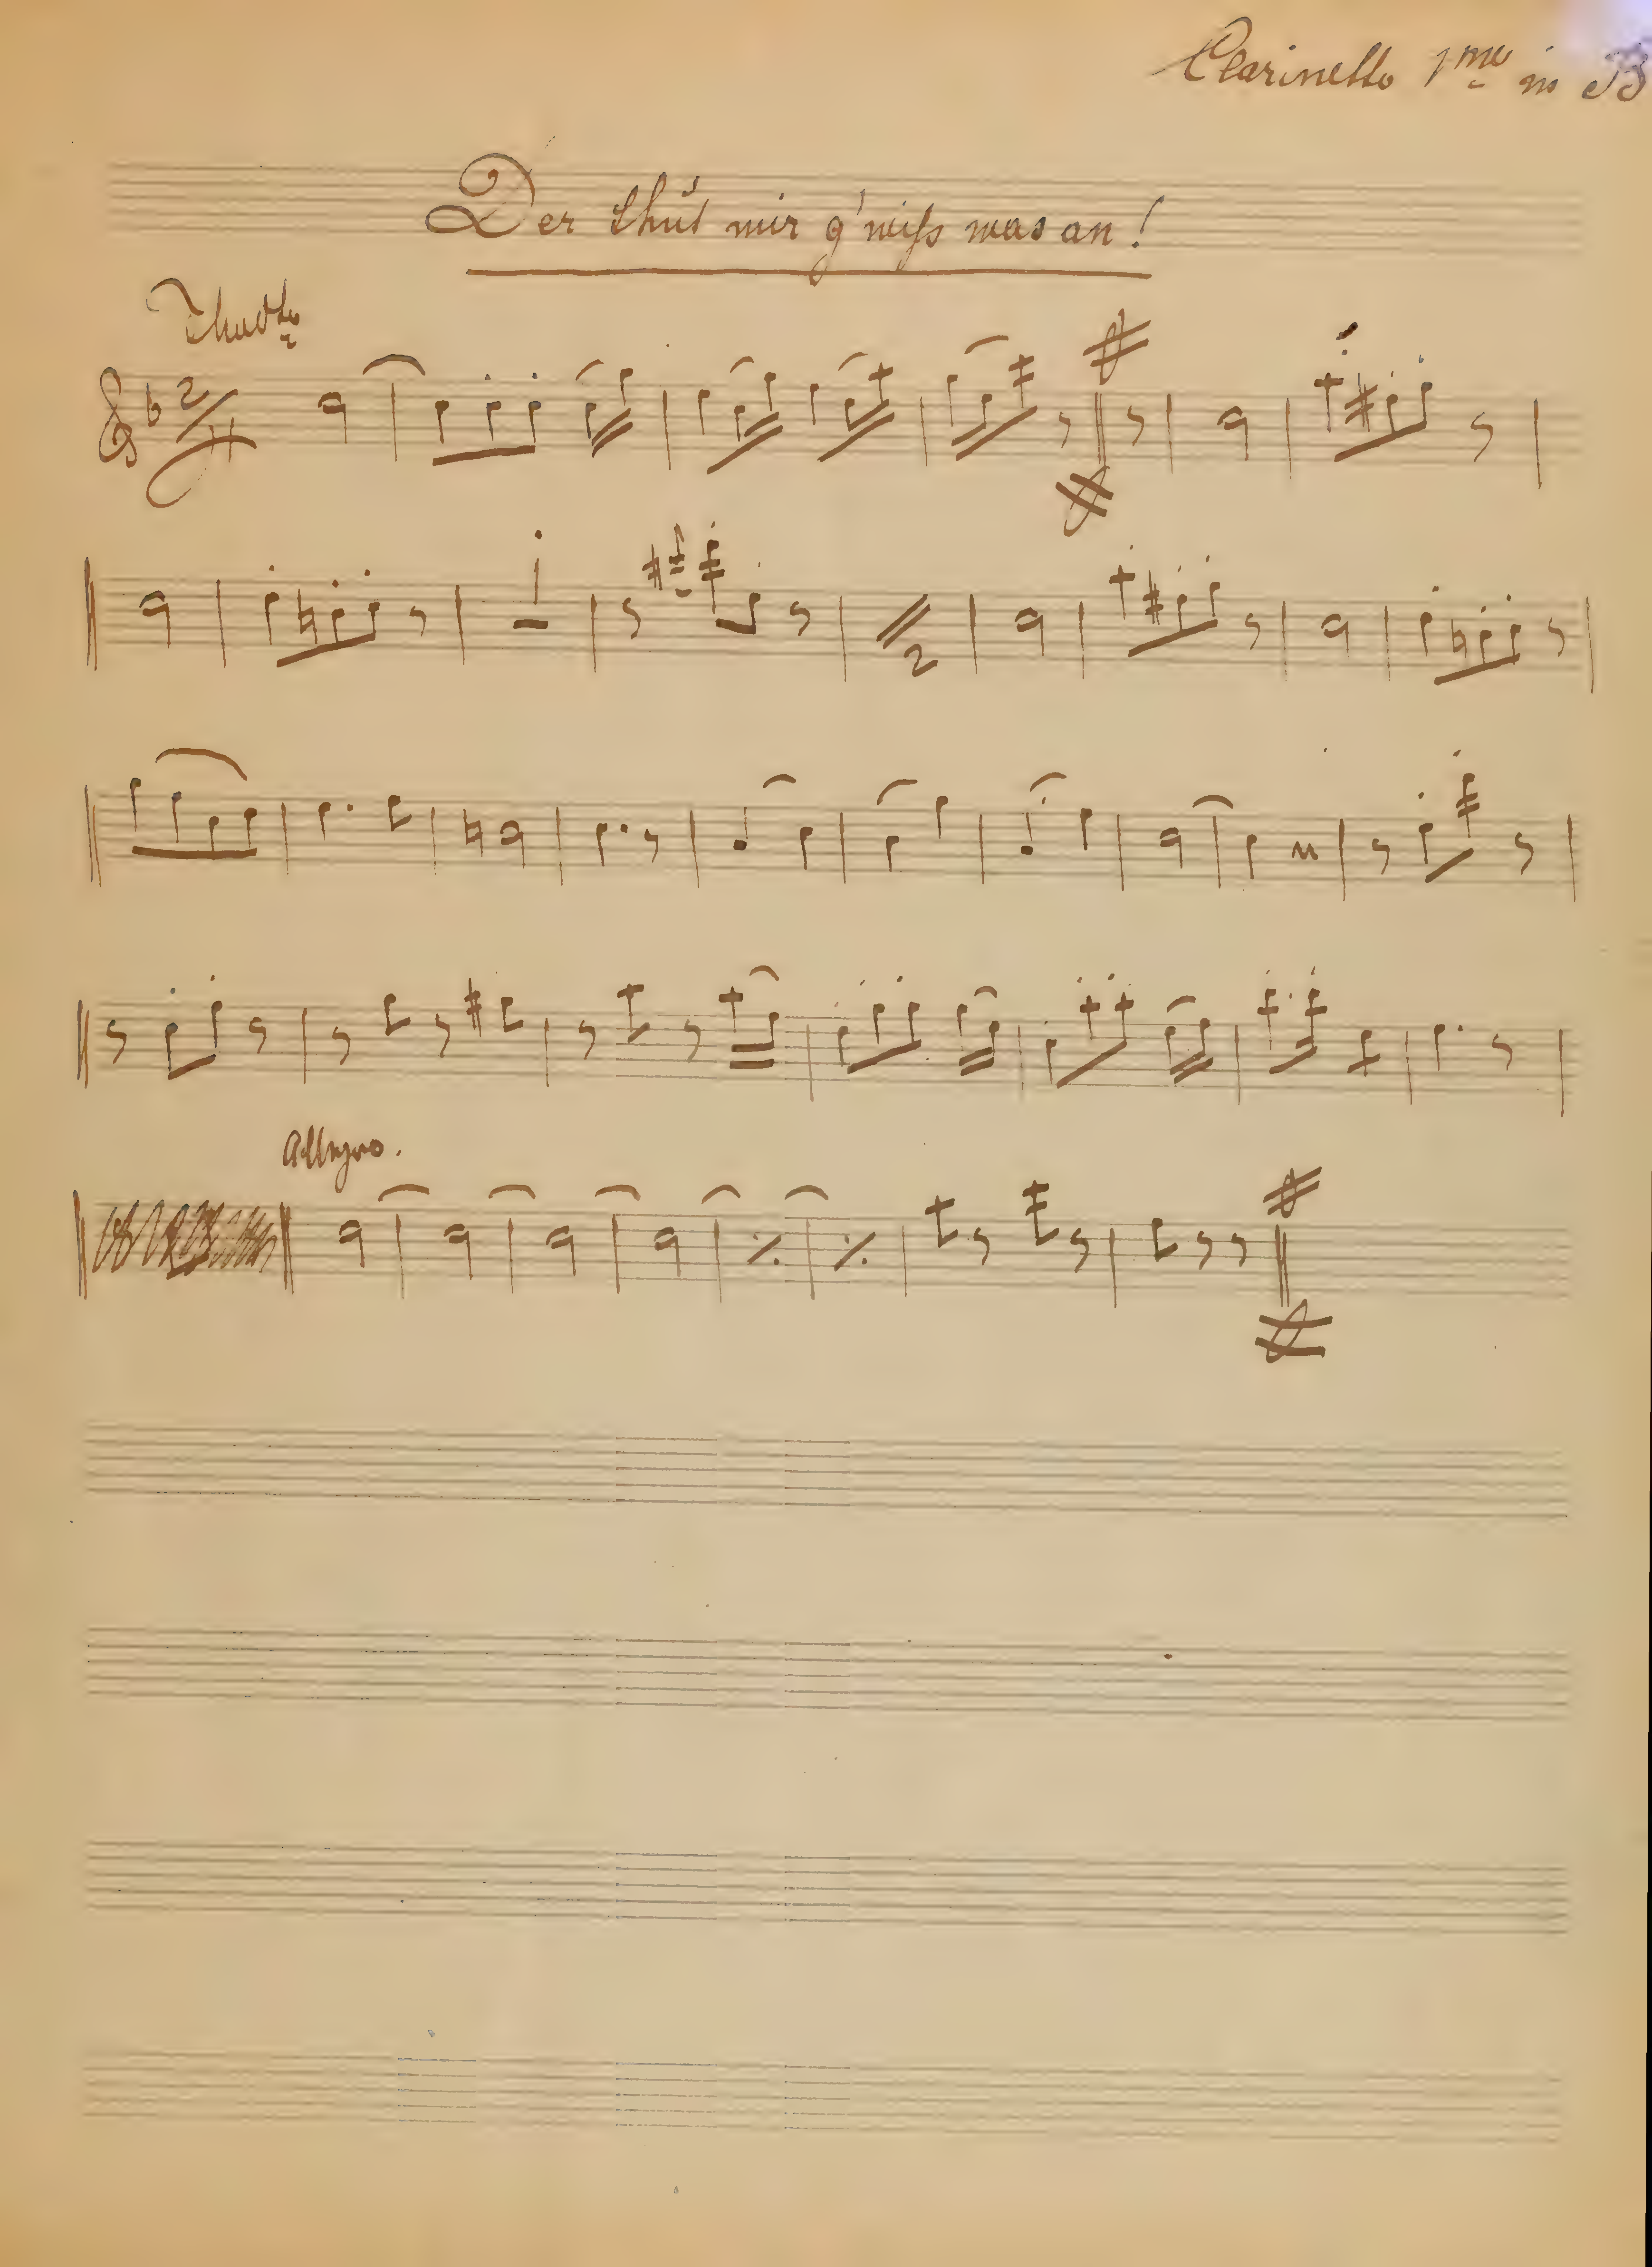 Clarinetto 1mo in B
Der thut mir g'wiß was an!
2/4
2
Allegro.